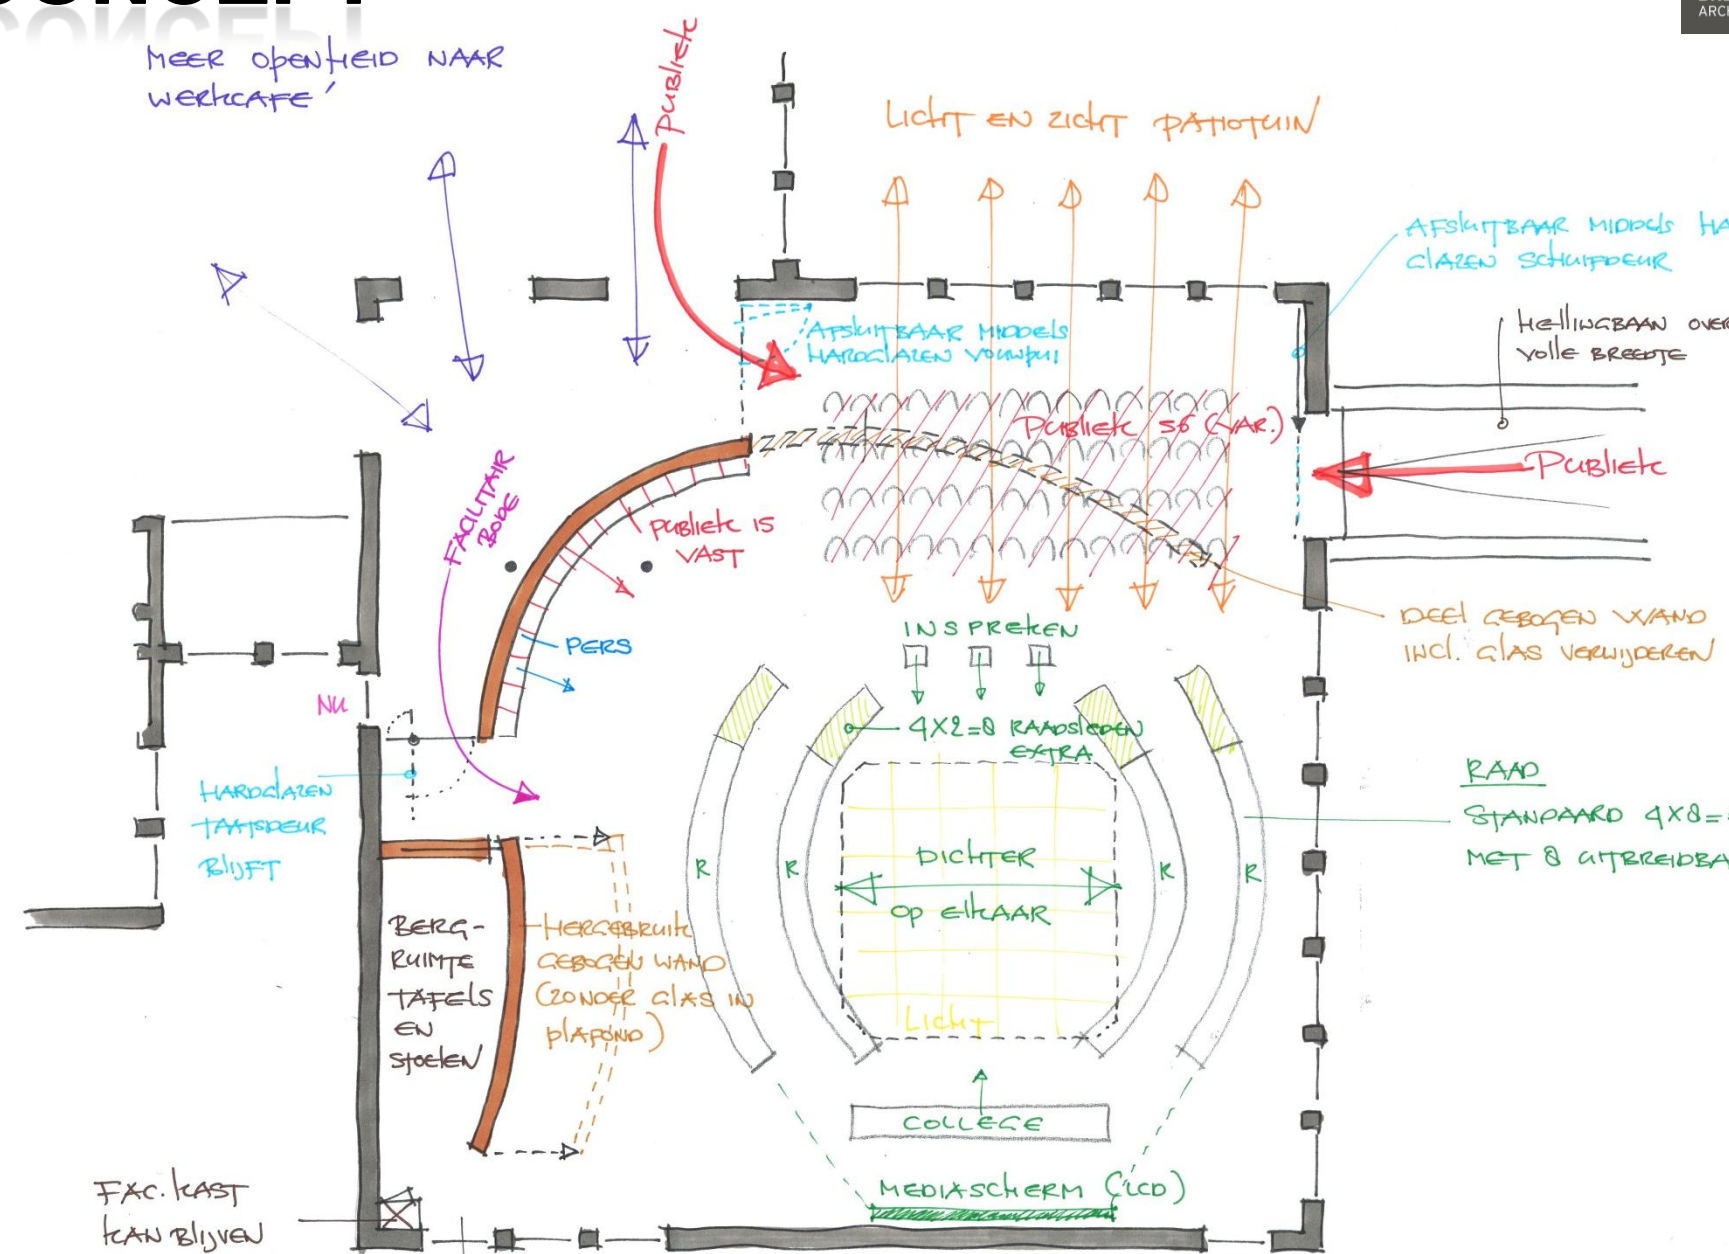 CONCEPT
ARCH
MEER OPENHEID NAAR
WERKCAFE'
PUBLIEK
LICHT EN ZICHT PATIOTUIN
AFSLUITBAAR MIDDELS HA
GLAZEN SCHUIFDEUR
HELLINGBAAN OVER
VOLLE BREEDTE
AFSLUITBAAR MIDDELS
HARDGLAZEN VOUWPUI
PUBLIEK 56 (VAR.)
PUBLIEK
FACILITAIR
BODE
PUBLIEK 15
VAST
PERS
INSPREKEN
DEEL GEBOGEN WAND
INCL. GLAS VERWIJDEREN
NU
4X2=8 RAADSLEDEN
EXTRA
HARDGLAZEN
TAATSDEUR
BLIJFT
RAAD
STANDAARD 4X8=
MET 8 UITBREIDBA
R
R
R
R
DICHTER
OP ELKAAR
BERG-
RUIMTE
TAFELS
EN
STOELEN
HERGEBRUIK
GEBOGEN WAND
(ZONDER GLAS IN
PLAFOND)
LICHT
COLLEGE
MEDIASCHERM (LCD)
FAC. KAST
KAN BLIJVEN